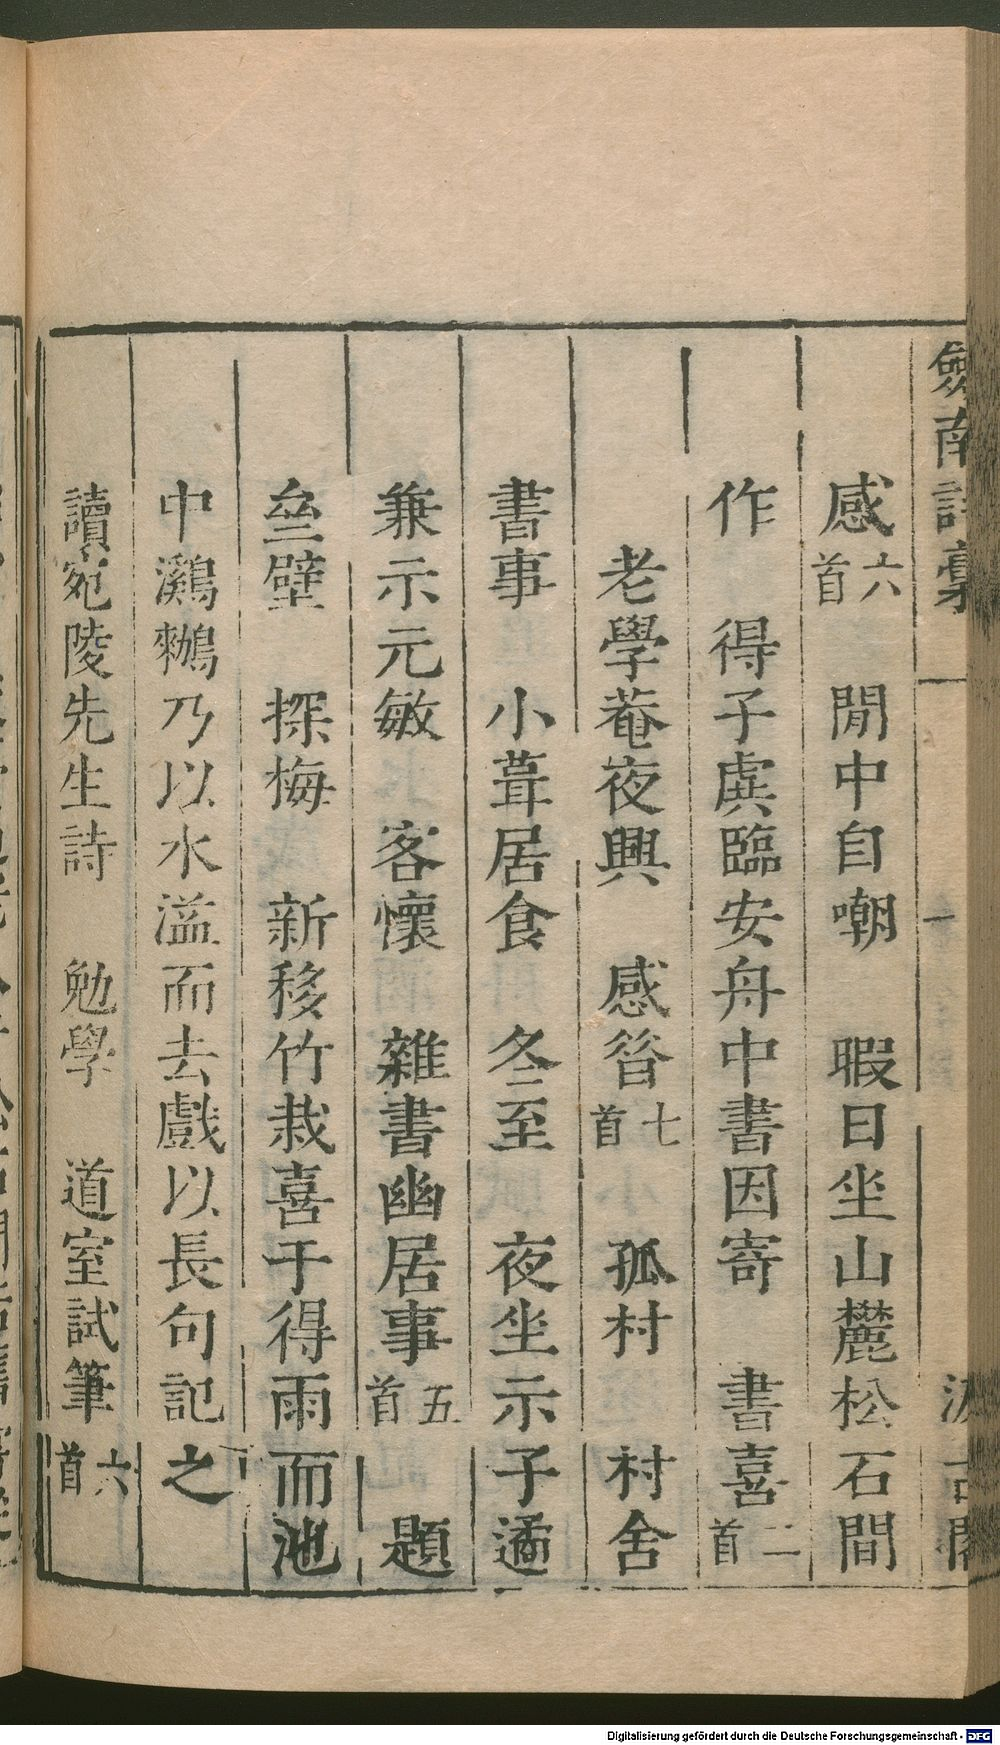 劍南詩稾 一 汲古閣
感六首 閒中自嘲 暇日坐山麓松石間
作 得子虡臨安舟中書因寄 書喜二首
老學菴夜興 感昔七首 孤村 村舍
書事 小葺居食 冬至 夜坐示子遹
兼示元敏 客懷 雜書幽居事五首 題
㙓壁 探梅 新移竹栽喜于得雨而池
中鸂鶒乃以水溢而去戲以長句記之
讀宛陵先生詩 勉學 道室試筆六首
Digitalisierung gefördert durch die Deutsche Forschungsgemeinschaft - DFG